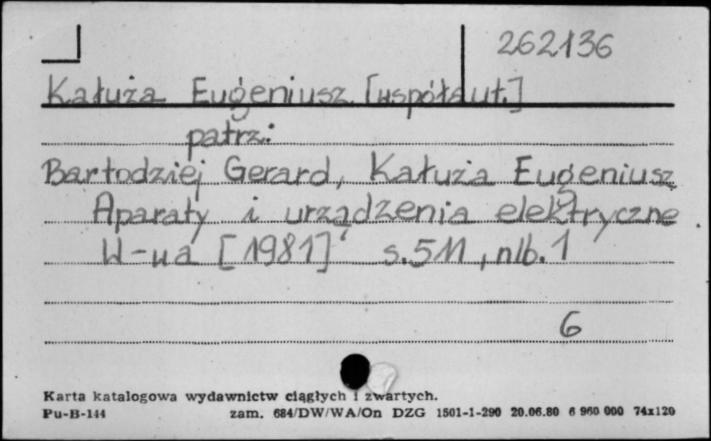 262136
Kałuża Eugeniusz [współaut.]
patrz:
Bartodziej Gerard, Kałuża Eugeniusz
Aparaty i urządzenia elektryczne.
W-wa [1981] s.511, nlb. 1
6
Karta katalogowa wydawnictw ciągłych i zwartych.
Pu-B-144 zam. 684/DW/WA/On DZG 1501-1-290 20.06.80 6 960 000 74x120